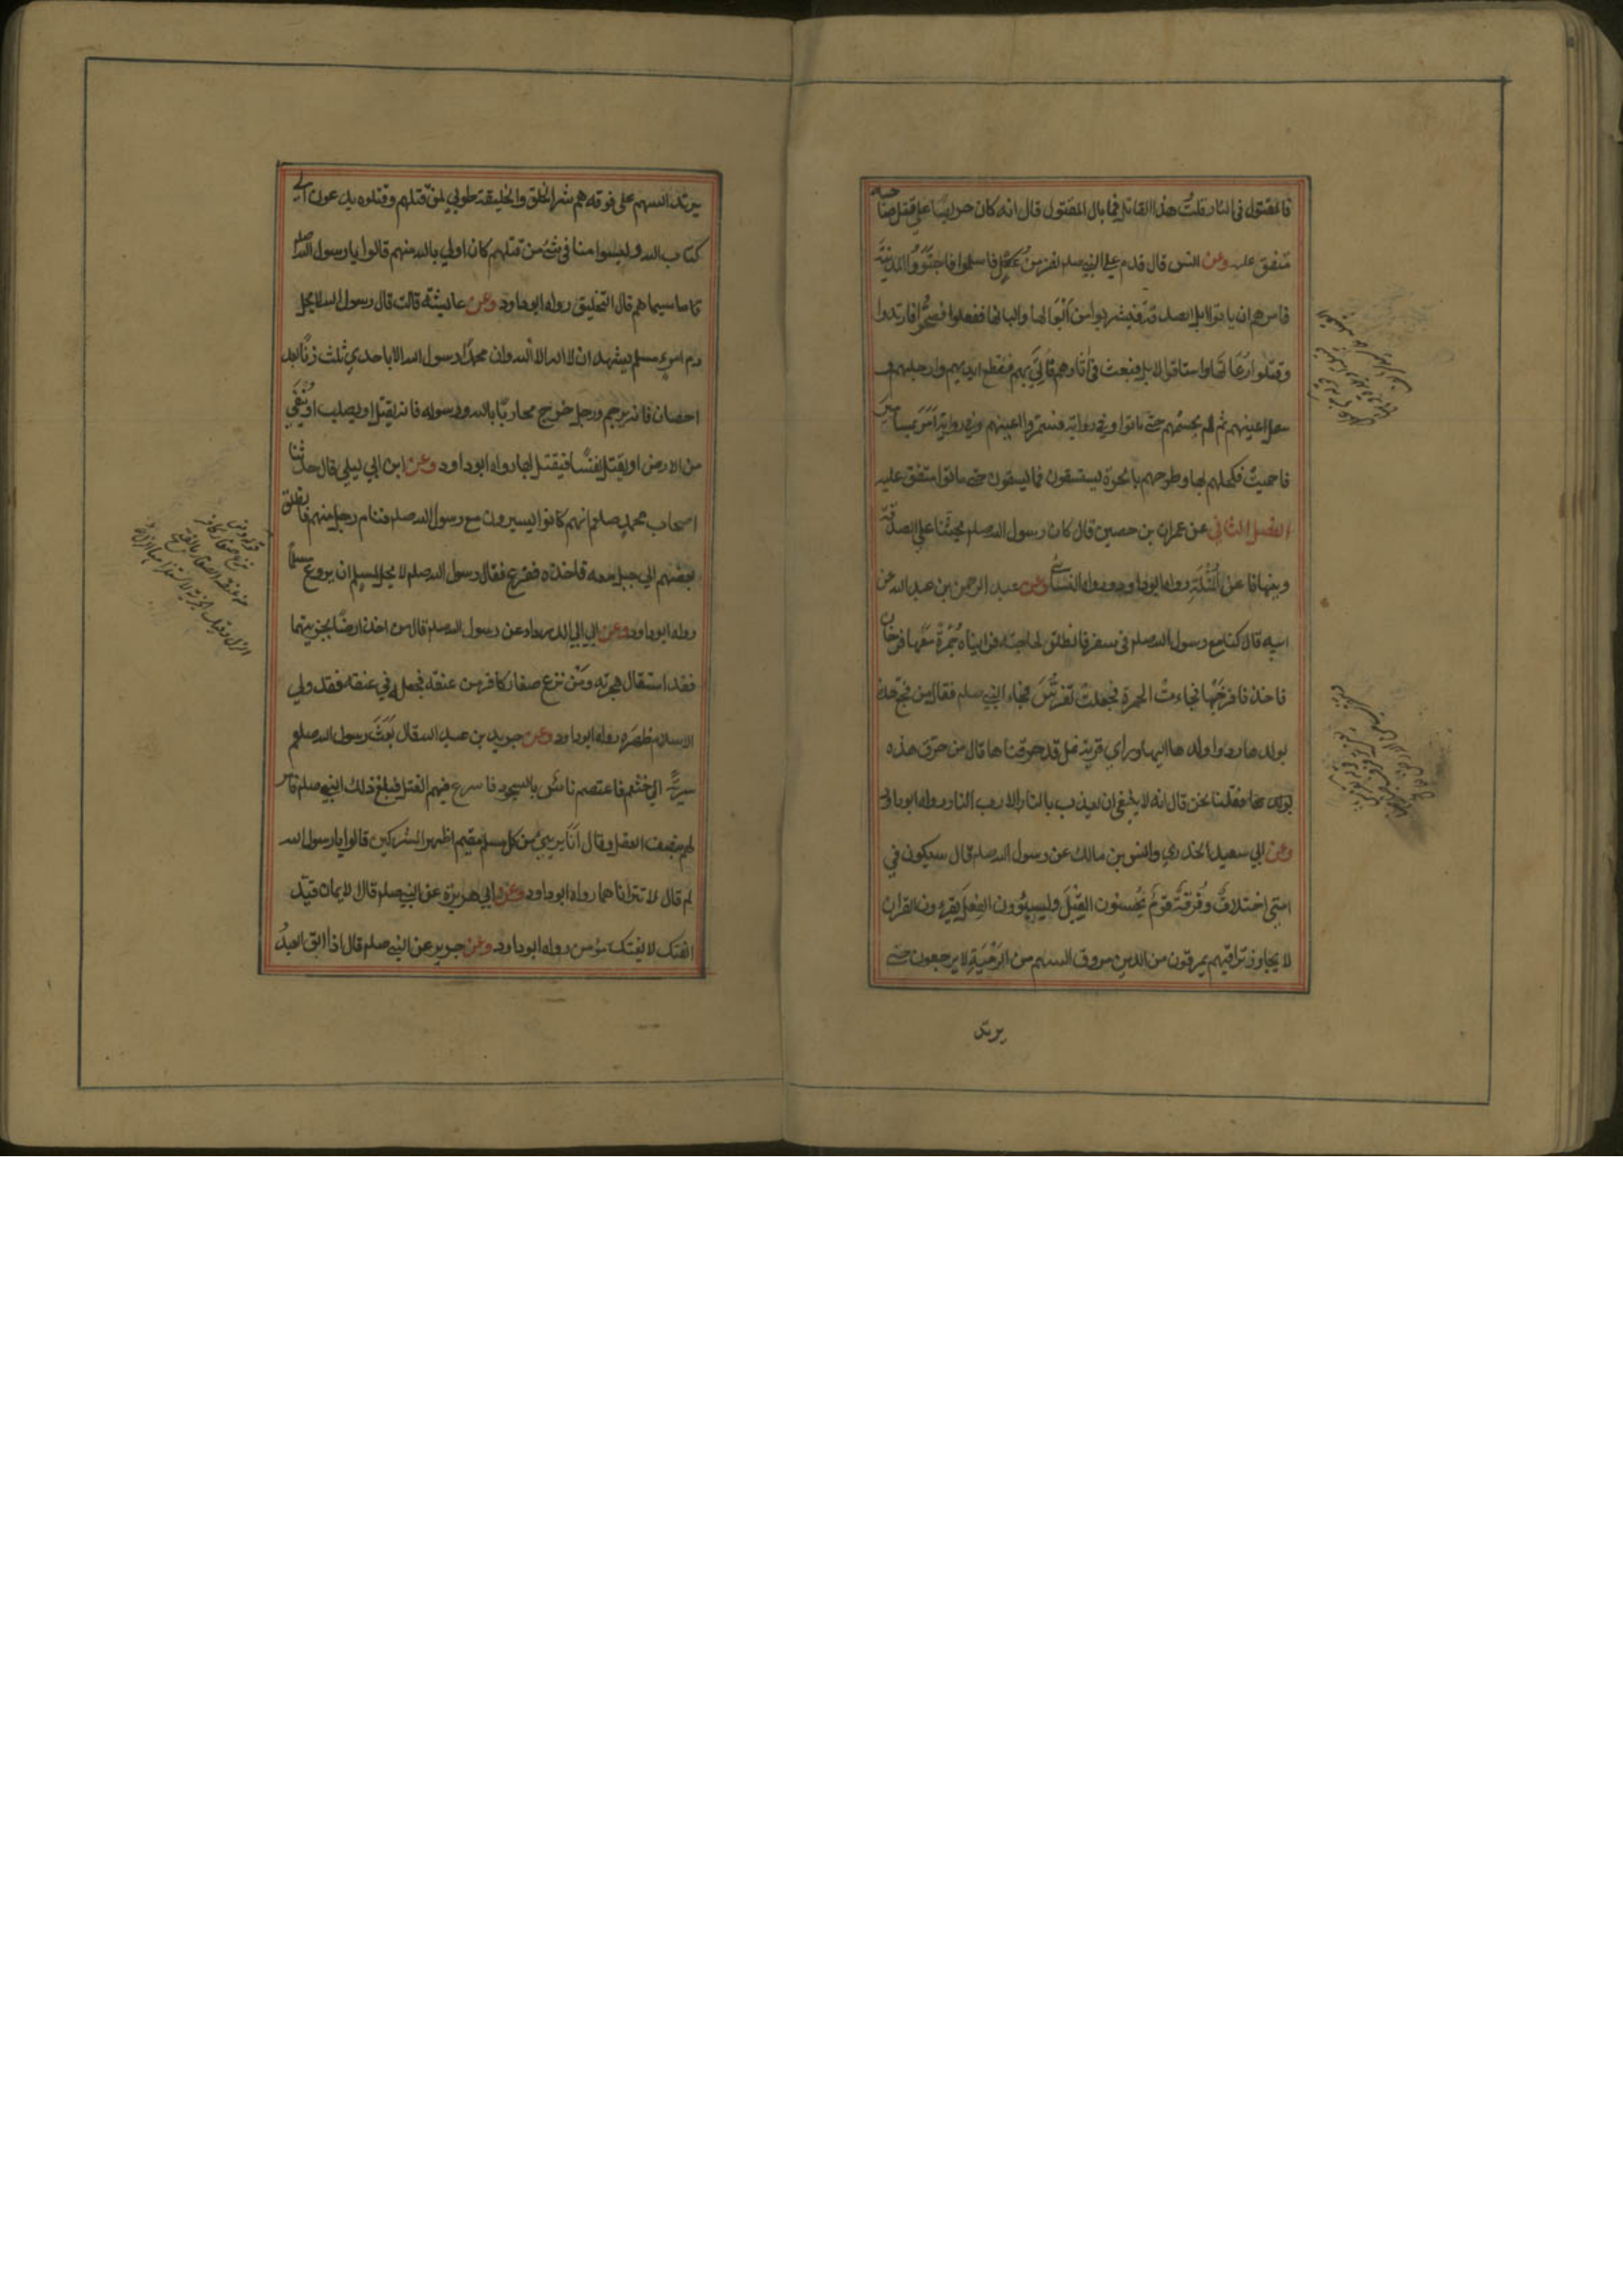 فالمقتول فى النار قلت هذا القاتل فما بال المقتول قال انه كان حريصا على قتل صاحبه
متفق عليه وعن انس قال قدم على النبي صلعم نفر من عكل فاسلموا فاجتووا المدينة
فامرهم ان ياتوا ابل الصدقة فيشربوا من ابوالها والبانها ففعلوا فصحوا فارتدوا
وقتلوا رعاتها واستاقوا الابل فبعث فى اثارهم فاتي بهم فقطع ايديهم وارجلهم و
سمل اعينهم ثم لم يحسمهم حتى ماتوا وفي رواية فسمروا اعينهم وفي رواية امر بمسامير
فاحميت فكحلهم بها وطرحهم بالحرة يستسقون فما يسقون حتى ماتوا متفق عليه
الفصل الثاني عن عمران بن حصين قال كان رسول الله صلعم يحثنا على الصدقة
وينهانا عن المثلة رواه ابوداود ورواه النسائي وعن عبد الرحمن بن عبد الله عن
ابيه قال كنا مع رسول الله صلعم فى سفر فانطلق لحاجته فراينا حمرة معها فرخان
فاخذنا فرخيها فجاءت الحمرة فجعلت تفرش فجاء النبي صلعم فقال من فجع هذه
بولدها ردوا ولدها اليها وراي قرية نمل قد حرقناها قال من حرق هذه
فقلنا نحن قال انه لا ينبغي ان يعذب بالنار الا رب النار رواه ابوداود
وعن ابي سعيد الخدري وانس بن مالك عن رسول الله صلعم قال سيكون في
امتي اختلاف وفرقة قوم يحسنون القيل ويسيئون الفعل يقرءون القران
لا يجاوز تراقيهم يمرقون من الدين مروق السهم من الرمية لا يرجعون حتى
يرتد
يرتد السهم على فوقه هم شر الخلق والخليقة طوبي لمن قتلهم وقتلوه يدعون الى
كتاب الله وليسوا منا فى شئ من قتلهم كان اولي بالله منهم قالوا يا رسول الله صلعم
ما سيماهم قال التحليق رواه ابوداود وعن عايشة قالت قال رسول الله لا يحل
دم امرء مسلم يشهد ان لا اله الا الله وان محمدا رسول الله الا باحدي ثلث زنا بعد
احصان فانه يرجم ورجل خرج محاربا بالله ورسوله فانه يقتل او يصلب او ينفي
من الارض او يقتل نفسا فيقتل بها رواه ابوداود وعن ابن ابي ليلي قال حدثنا
اصحاب محمد صلعم انهم كانوا يسيرون مع رسول الله صلعم فنام رجل منهم فانطلق
بعضهم الي حبل معه فاخذه ففزع فقال رسول الله صلعم لا يحل لمسلم ان يروع مسلما
رواه ابوداود وعن ابي الدرداء عن رسول الله صلعم قال من اخذ ارضا بجزيتها
فقد استقال هجرته ومن نزع صغار كافر من عنقه فجعله في عنقه فقد ولي
الاسلام ظهره رواه ابوداود وعن جرير بن عبد الله قال بعث رسول الله صلعم
سرية الي خثعم فاعتصم ناس بالسجود فاسرع فيهم القتل فبلغ ذلك النبي صلعم فامر
لهم بنصف العقل وقال انا بريئ من كل مسلم مقيم اظهر المشركين قالوا يا رسول الله
لم قال لا تترااا ناهما رواه ابوداود وعن ابي هريرة عن النبي صلعم قال الايمان قيد
الفتك لا يفتك مؤمن رواه ابوداود وعن جرير عن النبي صلعم قال اذا ابق العبد